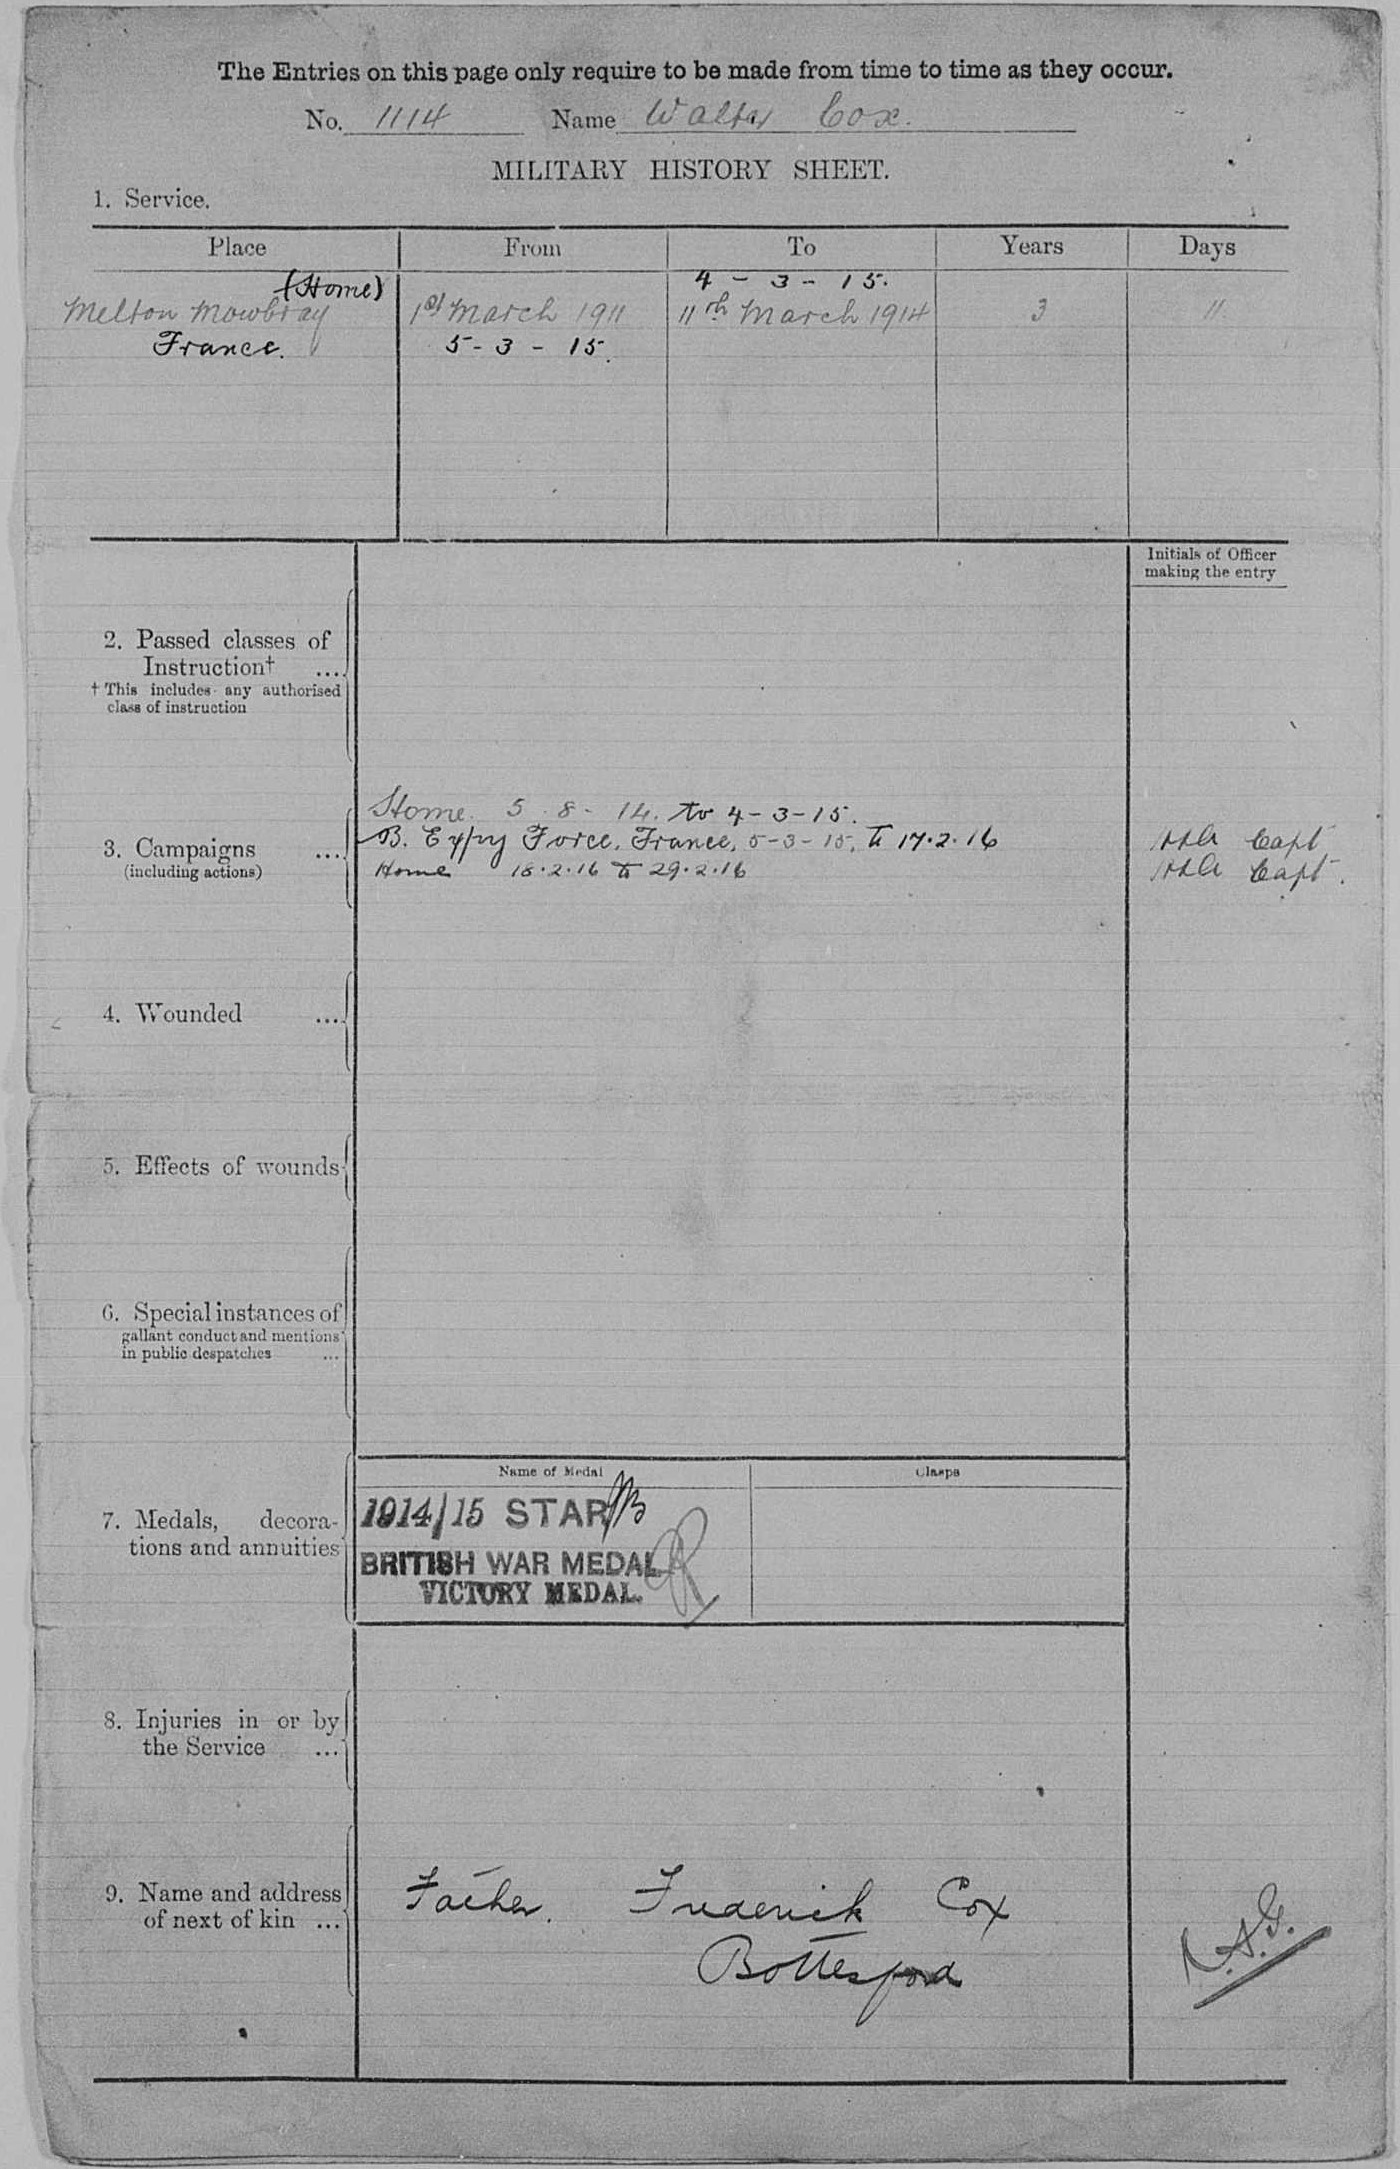 The Entries on this page only require to be made from time to time as they occur.
No. 1114 Name Walter Cox.
MILITARY HISTORY SHEET.
1. Service.
Place From To Years Days
(Home) 4 - 3 - 15.
Melton Mowbray 1st March 1911 11th March 1914 3 11
France. 5 - 3 - 15.
Initials of Officer
making the entry
2. Passed classes of
Instruction† ...
† This includes any authorised
class of instruction
Home. 5 - 8 - 14. to 4 - 3 - 15.
3. Campaigns ... B. Expy Force, France, 5-3-15, to 17.2.16 Capt
(including actions) Home 18.2.16 to 29.2.16 Capt.
4. Wounded ...
5. Effects of wounds
6. Special instances of
gallant conduct and mentions
in public despatches ...
Name of Medal Clasps
7. Medals, decora- 1914/15 STAR
tions and annuities BRITISH WAR MEDAL
VICTORY MEDAL.
8. Injuries in or by
the Service ...
9. Name and address Father. Frederick Cox
of next of kin ... Bottesford